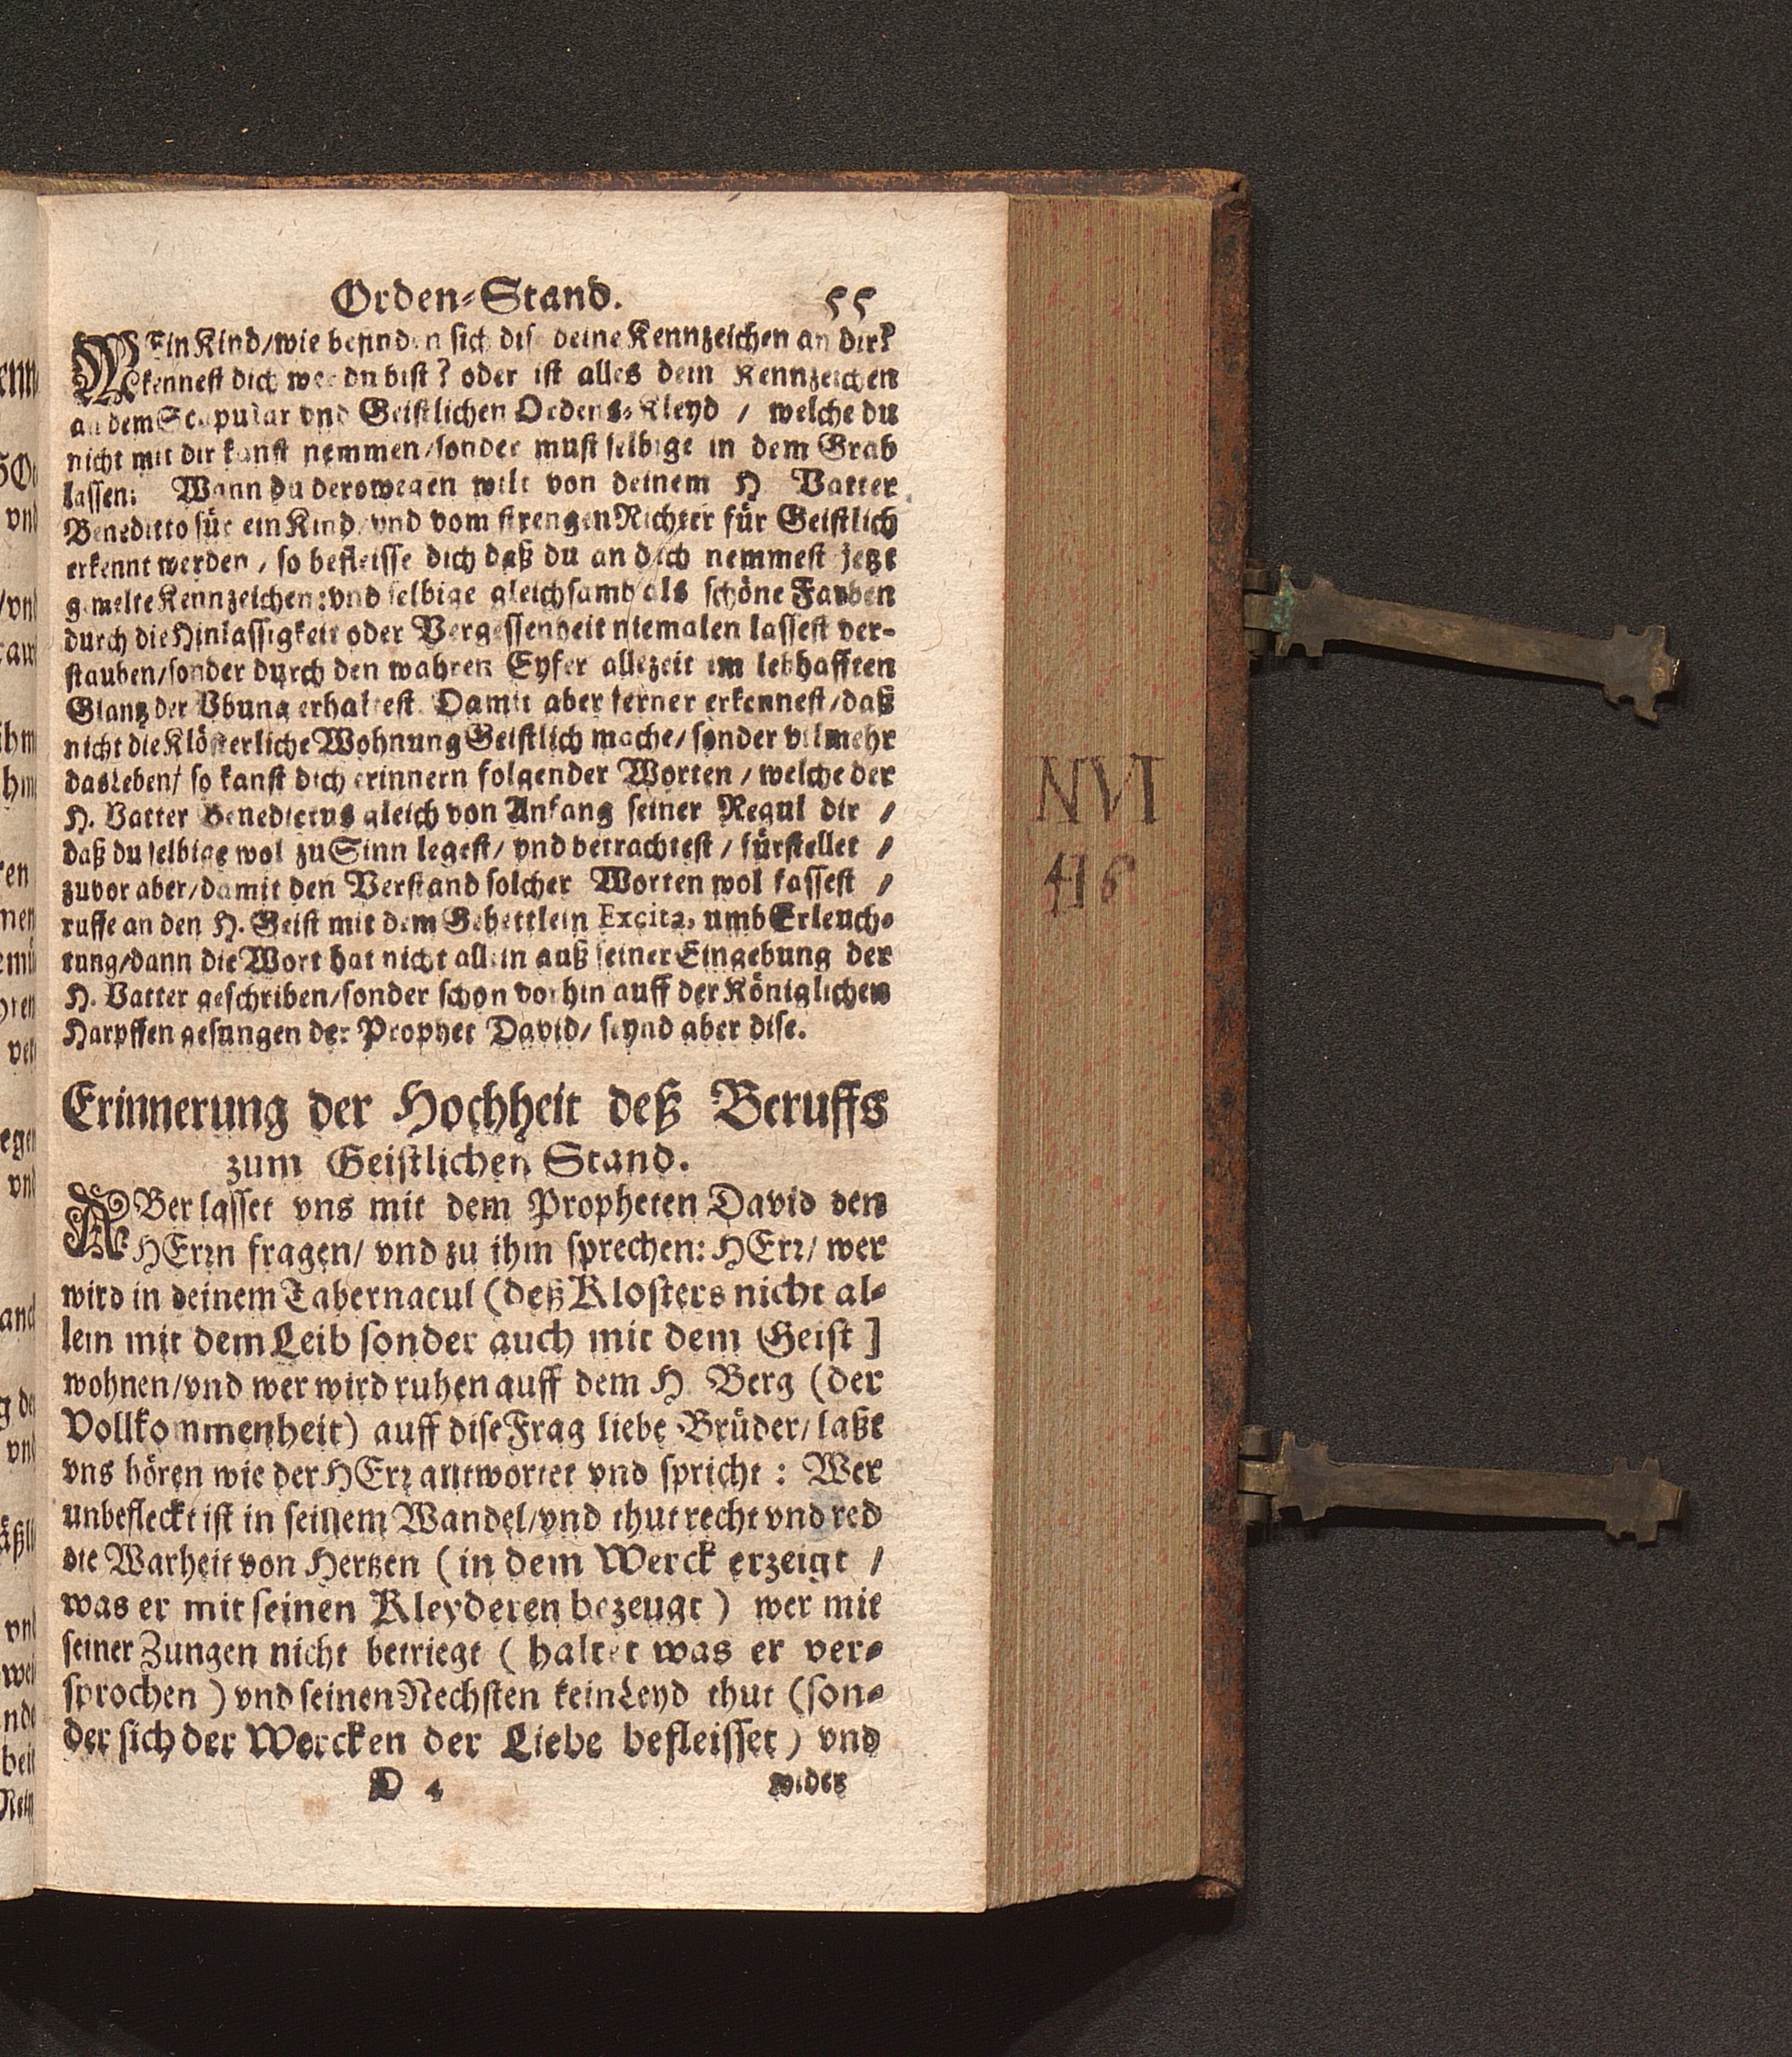 Orden-Stand. 55
MEin Kind/wie befinden sich dise deine Kennzeichen an dir?
kennest dich wer du bist? oder ist alles dein Kennzeichen
an dem Scapular vnd Geistlichen Ordens-Kleyd / welche du
nicht mit dir kanst nemmen/sonder must selbige in dem Grab
lassen: Wann du derowegen wilt von deinem H Vatter
Benedicto für ein Kind/vnd vom strengen Richter für Geistlich
erkennt werden / so befleisse dich daß du an dich nemmest jetzt
gemelte Kennzeichen: vnd selbige gleichsamb als schöne Farben
durch die Hinlässigkeit oder Vergessenheit niemalen lassest ver-
stauben/sonder durch den wahren Eyfer allezeit im lebhafften
Glantz der Vbung erhaltest. Damit aber ferner erkennest/daß
nicht die Klösterliche Wohnung Geistlich mache/ sonder vilmehr
das Leben/ so kanst dich erinnern folgender Worten / welche der
H. Vatter Benedictus gleich von Anfang seiner Regul dir /
daß du selbige wol zu Sinn legest/ vnd betrachtest / fürstellet /
zuvor aber/damit den Verstand solcher Worten wol fassest /
ruffe an den H. Geist mit dem Gebettlein Excita, umb Erleuch-
tung/dann die Wort hat nicht allein auß seiner Eingebung der
H. Vatter geschriben/sonder schon vorhin auff der Königlichen
Harpffen gesungen der Prophet David/ seynd aber dise.
Erinnerung der Hochheit deß Beruffs
zum Geistlichen Stand.
ABer lasset vns mit dem Propheten David den
HErrn fragen/ vnd zu ihm sprechen: HErr/ wer
wird in deinem Tabernacul (deß Klosters nicht al-
lein mit dem Leib sonder auch mit dem Geist]
wohnen/vnd wer wird ruhen auff dem H. Berg (der
Vollkommenheit) auff dise Frag liebe Brüder/ laßt
vns hören wie der HErr antwortet vnd spricht : Wer
unbefleckt ist in seinem Wandel/vnd thut recht vnd red
die Warheit von Hertzen (in dem Werck erzeigt /
was er mit seinen Kleyderen bezeugt) wer mit
seiner Zungen nicht betriegt ( haltet was er ver-
sprochen ) vnd seinen Nechsten kein Leyd thut (son-
der sich der Wercken der Liebe befleisset) vnd
D 4 wider
NVI
416